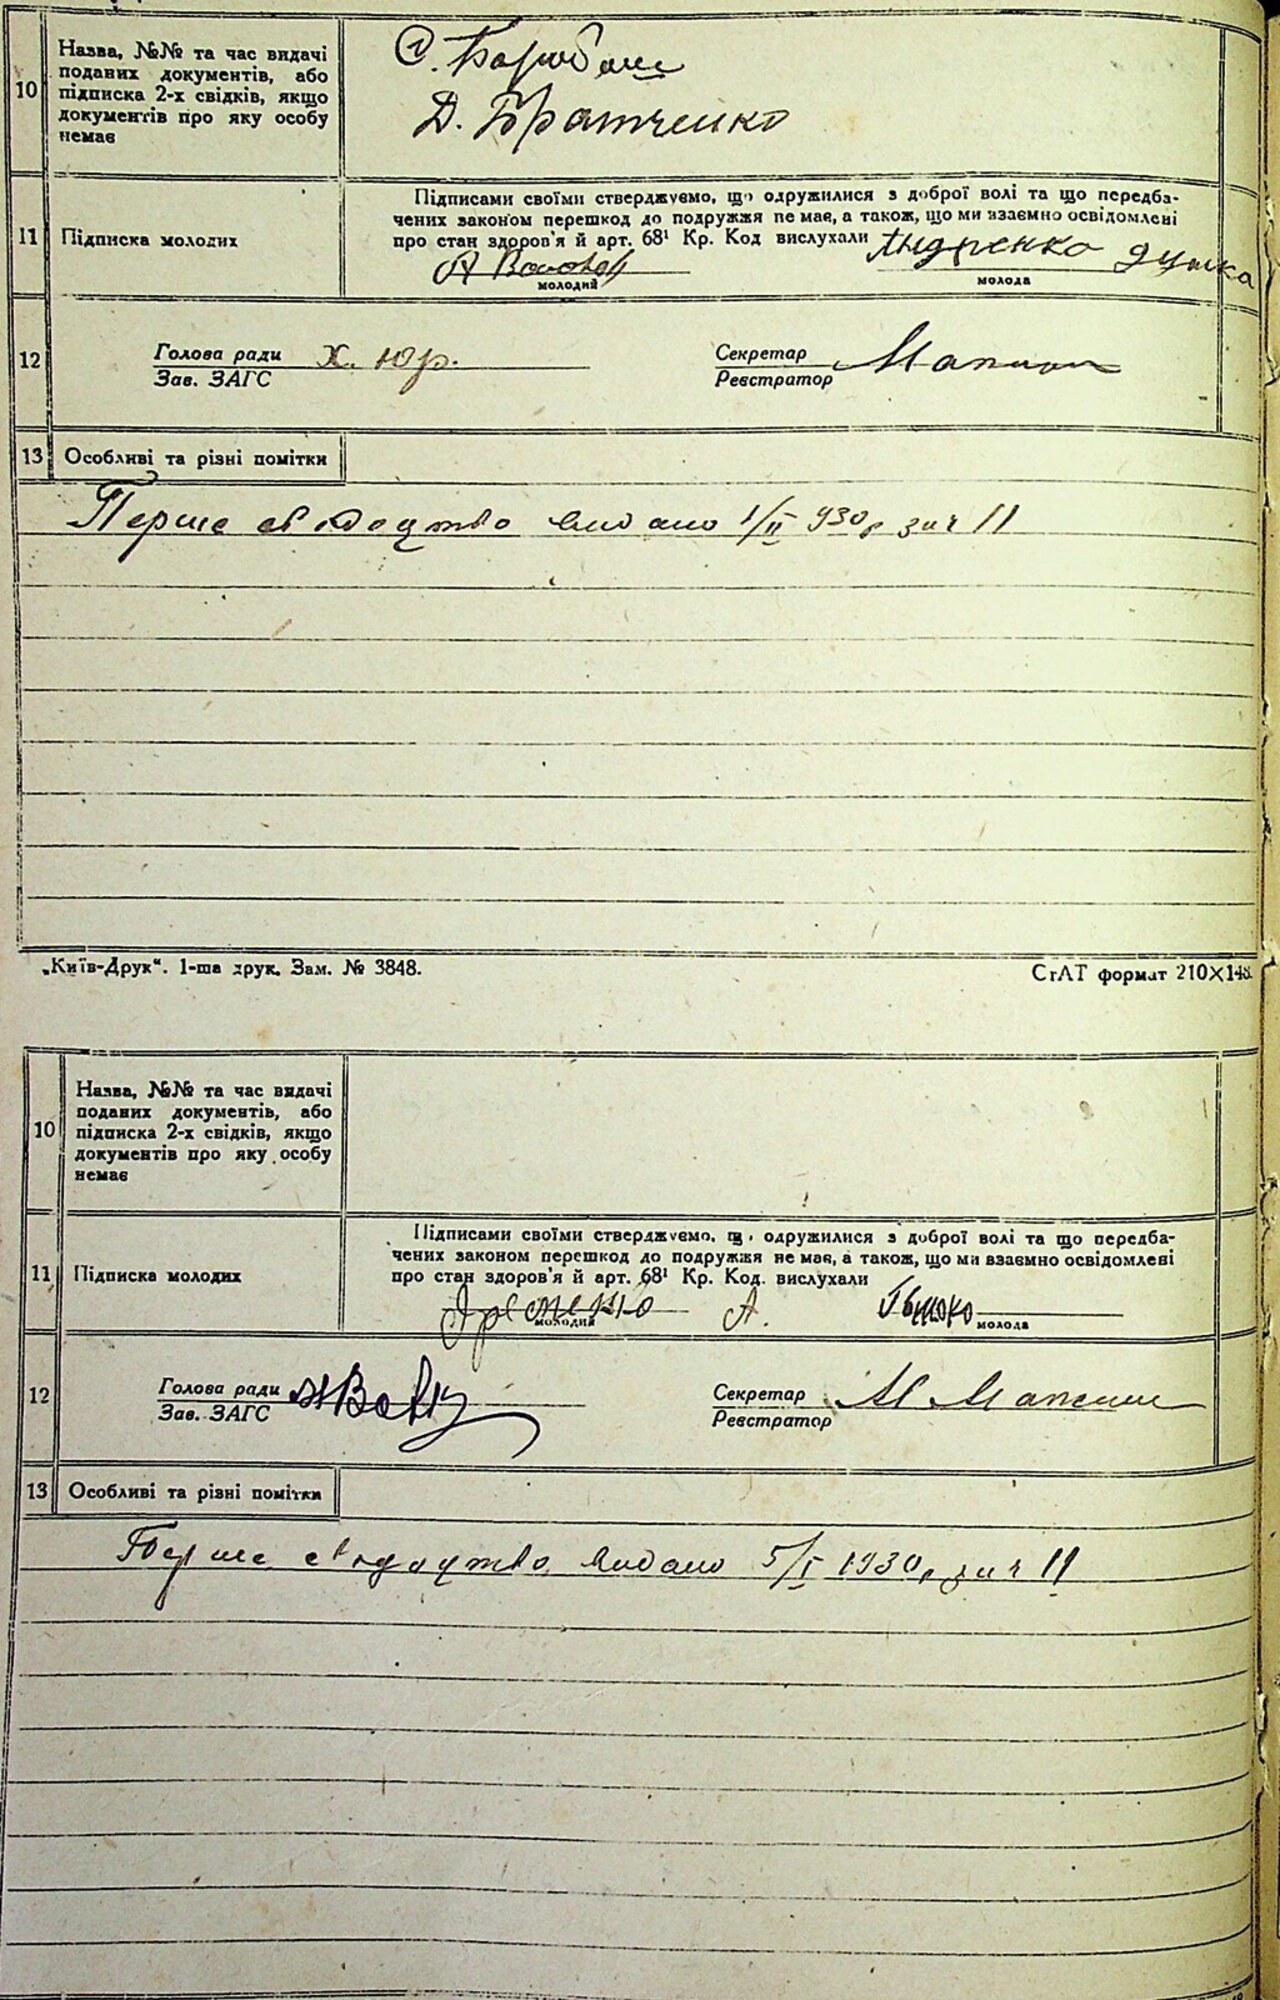 10
Назва, №№ та час видачі
поданих документів, або
підписка 2-х свідків, якщо
документів про яку особу
немає
Д. Братченко
11
Підписка молодих
Підписами своїми стверджуємо, що одружилися з доброї волі та що передба-
чених законом перешкод до подружжя не має, а також, що ми взаємно освідомлені
про стан здоров'я й арт. 68¹ Кр. Код вислухали
молодий
молода
12
Голова ради
Зав. ЗАГС
Секретар
Реєстратор
13
Особливі та різні помітки
Перше свідоцтво видано 1/II 930р
„Київ-Друк“. 1-ша друк. Зам. № 3848.
СтАТ формат 210×148.
10
Назва, №№ та час видачі
поданих документів, або
підписка 2-х свідків, якщо
документів про яку особу
немає
11
Підписка молодих
Підписами своїми стверджуємо, що одружилися з доброї волі та що передба-
чених законом перешкод до подружжя не має, а також, що ми взаємно освідомлені
про стан здоров'я й арт. 68¹ Кр. Код. вислухали
А.
молодий
молода
12
Голова ради
Зав. ЗАГС
Секретар
Реєстратор
13
Особливі та різні помітки
Перше свідоцтво видано 5/I 1930р